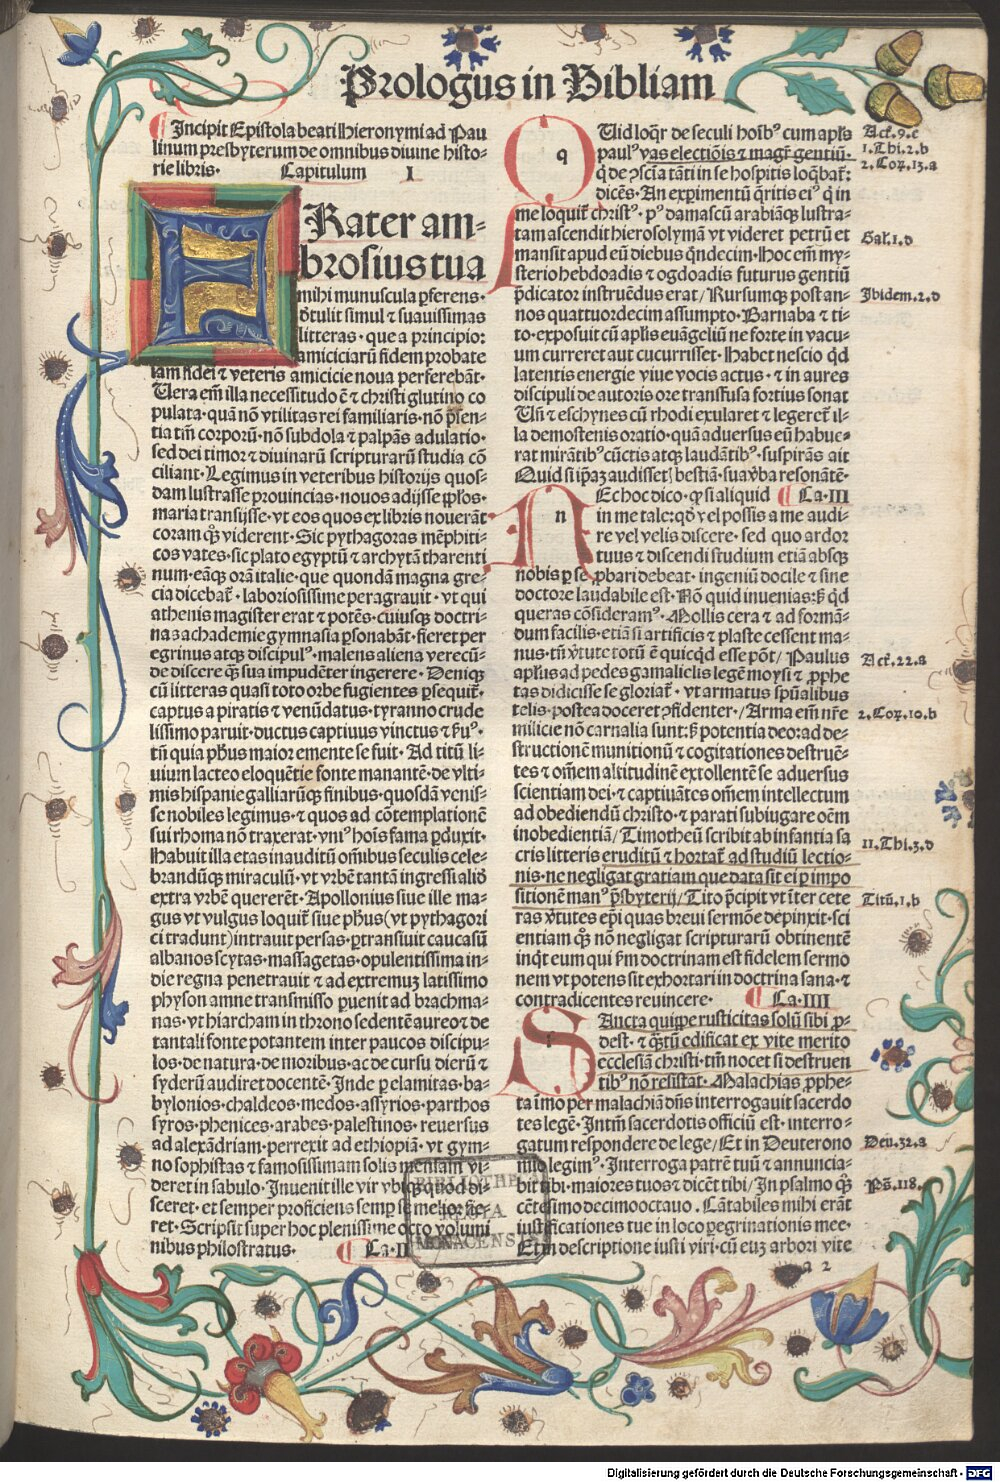 Prologus in Bibliam
Incipit Epistola beati Hieronymi ad Pau
linum presbyterum de omnibus diuine histo-
rie libris. Capitulum I
FRater am-
brosius tua
mihi munuscula ꝑferens.
detulit simul ⁊ suauissimas
litteras. que a principio:
amiciciarū fidem probate
iam fidei ⁊ veteris amicicie noua perferebāt.
Uera em̄ illa necessitudo ē ⁊ christi glutino co
pulata. quā nō vtilitas rei familiaris. nō p̄sen-
tia tm̄ corporū. nō subdola ⁊ palpās adulatio.
sed dei timor ⁊ diuinarū scripturarū studia cō
ciliant. Legimus in veteribus historijs quos-
dam lustrasse prouincias. nouos adijsse pp̄los.
maria transijsse. vt eos quos ex libris nouerāt
coram qꝫ viderent. Sic pythagoras mēphiti-
cos vates. sic plato egyptū ⁊ archytā tharenti
num. eāqꝫ orā italie. que quondā magna gre-
cia dicebat̄. laboriosissime peragrauit. vt qui
athenis magister erat ⁊ potēs. cuiusqꝫ doctri-
nas achademie gymnasia ꝑsonabāt. fieret per
egrinus atqꝫ discipulꝰ. malens aliena verecū-
de discere qꝫ sua impudēter ingerere. Deniqꝫ
cū litteras quasi toto orbe fugientes ꝑsequit̄.
captus a piratis ⁊ venūdatus. tyranno crude
lissimo paruit. ductus captiuus vinctus ⁊ ẜuꝰ.
tn̄ quia ph̄us maior emente se fuit. Ad titū li-
uium lacteo eloquētie fonte manantē. de vlti-
mis hispanie galliarūqꝫ finibus. quosdā venis-
se nobiles legimus. ⁊ quos ad cōtemplationē
sui rhoma nō traxerat. vniꝰ hoīs fama ꝑduxit.
Habuit illa etas inauditū om̄ibus seculis cele-
brandūqꝫ miraculū. vt vrbē tantā ingressi aliō
extra vrbē quererēt. Apollonius siue ille ma-
gus vt vulgus loquit̄ siue ph̄us (vt pythagori
ci tradunt) intrauit persas. ꝑtransiuit caucasū
albanos scytas. massagetas. opulentissima in-
die regna penetrauit ⁊ ad extremuꝫ latissimo
physon amne transmisso ꝑuenit ad brachma-
nas. vt hiarcham in throno sedentē aureo ⁊ de
tantali fonte potantem inter paucos discipu-
los. de natura. de moribus. ac de cursu dierū ⁊
syderū audiret docentē. Inde ꝑ elamitas. ba-
bylonios. chaldeos. medos. assyrios. parthos
syros. phenices. arabes. palestinos. reuersus
ad alexādriam. perrexit ad ethiopiā. vt gym-
no sophistas ⁊ famosissimam solis mensam vi-
deret in sabulo. Inuenit ille vir vbiqꝫ quod di-
sceret. et semper proficiens semꝑ se melior fie-
ret. Scripsit super hoc plenissime octo volumi
nibus philostratus. Ca. II
QUid loqr̄ de seculi hoībꝰ cum apl̄s
paulꝰ vas electiōis ⁊ magr̄ gentiū.
q̄ de ꝯsciā tāti in se hospitis loqbat̄:
dicēs. An exꝑimentū q̄ritis eiꝰ q̄ in
me loquit̄ christꝰ. pꝰ damascū arabiāqꝫ lustra-
tam ascendit hierosolymā vt videret petrū et
mansit apud eū diebus q̄ndecim. Hoc em̄ my-
sterio hebdoadis ⁊ ogdoadis futurus gentiū
p̄dicator instruēdus erat / Rursumqꝫ post an-
nos quattuordecim assumpto. Barnaba ⁊ ti-
to. exposuit cū apl̄is euāgeliū ne forte in vacu-
um curreret aut cucurrisset. Habet nescio qd̄
latentis energie viue vocis actus. ⁊ in aures
discipuli de autoris ore transfusa fortius sonat
Un̄ ⁊ eschynes cū rhodi exularet ⁊ legeret̄ il-
la demostenis oratio. quā aduersus eū habue-
rat mirātibꝰ cūctis atqꝫ laudātibꝰ. suspirās ait
Quid si ip̄aꝫ audissetꝭ bestiā. sua v̄ba resonātē.
NEc hoc dico. qꝫ si aliquid Ca. III
in me tale: qd̄ vel possis a me audi-
re vel velis discere. sed quo ardor
tuus ⁊ discendi studium etiā absqꝫ
nobis ꝑ se ꝓbari debeat. ingeniū docile ⁊ sine
doctore laudabile est. Nō quid inuenias: ẜ qd̄
queras cōsideramꝰ. Mollis cera ⁊ ad formā-
dum facilis. etiā si artificis ⁊ plaste cessent ma-
nus. tn̄ v̄tute totū ē quicqd̄ esse pōt / Paulus
apl̄us ad pedes gamalielis legē moysi ⁊ ꝓphe
tas didicisse se gloriat̄. vt armatus spūalibus
telis. postea doceret ꝯfidenter. / Arma em̄ nr̄e
milicie nō carnalia sunt: ẜ potentia deo: ad de-
structionē munitionū ⁊ cogitationes destruē-
tes ⁊ om̄em altitudinē extollentē se aduersus
scientiam dei. ⁊ captiuātes om̄em intellectum
ad obediendū christo. ⁊ parati subiugare oēm
inobedientiā / Timotheū scribit ab infantia sa
cris litteris eruditū ⁊ hortat̄ ad studiū lectio-
nis. ne negligat gratiam que data sit ei ꝑ impo
sitionē manꝰ p̄sbyterij / Tito p̄cipit vt īter cete
ras v̄tutes ep̄i quas breui sermōe depinxit. sci
entiam qꝫ nō negligat scripturarū obtinentē
inq̄t eum qui ẜm doctrinam est fidelem sermo
nem vt potens sit exhortari in doctrina sana. ⁊
contradicentes reuincere. Ca. IIII
SAncta quippe rusticitas solū sibi ꝓ-
dest. ⁊ qꝫtū edificat ex vite merito
ecclesiā christi. tm̄ nocet si destruen
tibꝰ nō resistat. Malachias ꝓphe-
ta īmo per malachiā dn̄s interrogauit sacerdo
tes legē. Intm̄ sacerdotis officiū est. interro-
gatum respondere de lege / Et in Deuterono
mio legimꝰ. Interroga patrē tuū ⁊ annuncia-
bit tibi. maiores tuos ⁊ dicēt tibi / In psalmo qꝫ
cētesimo decimooctauo. Cātabiles mihi erāt
iustificationes tue in loco ꝑegrinationis mee.
Et in descriptione iusti viri. cū euꝫ arbori vite
a 2
Act̄. 9. c
1. Thi. 2. b
2. Coꝝ. 13. a
Gal. 1. d
Ibidem. 2. d
Act̄. 22. a
2. Coꝝ. 10. b
11. Thi. 3. d
Titū. 1. b
Deu. 32. a
Ps̄. 118.
BIBLIOTHECA
REGIA
MONACENSIS
Digitalisierung gefördert durch die Deutsche Forschungsgemeinschaft - DFG